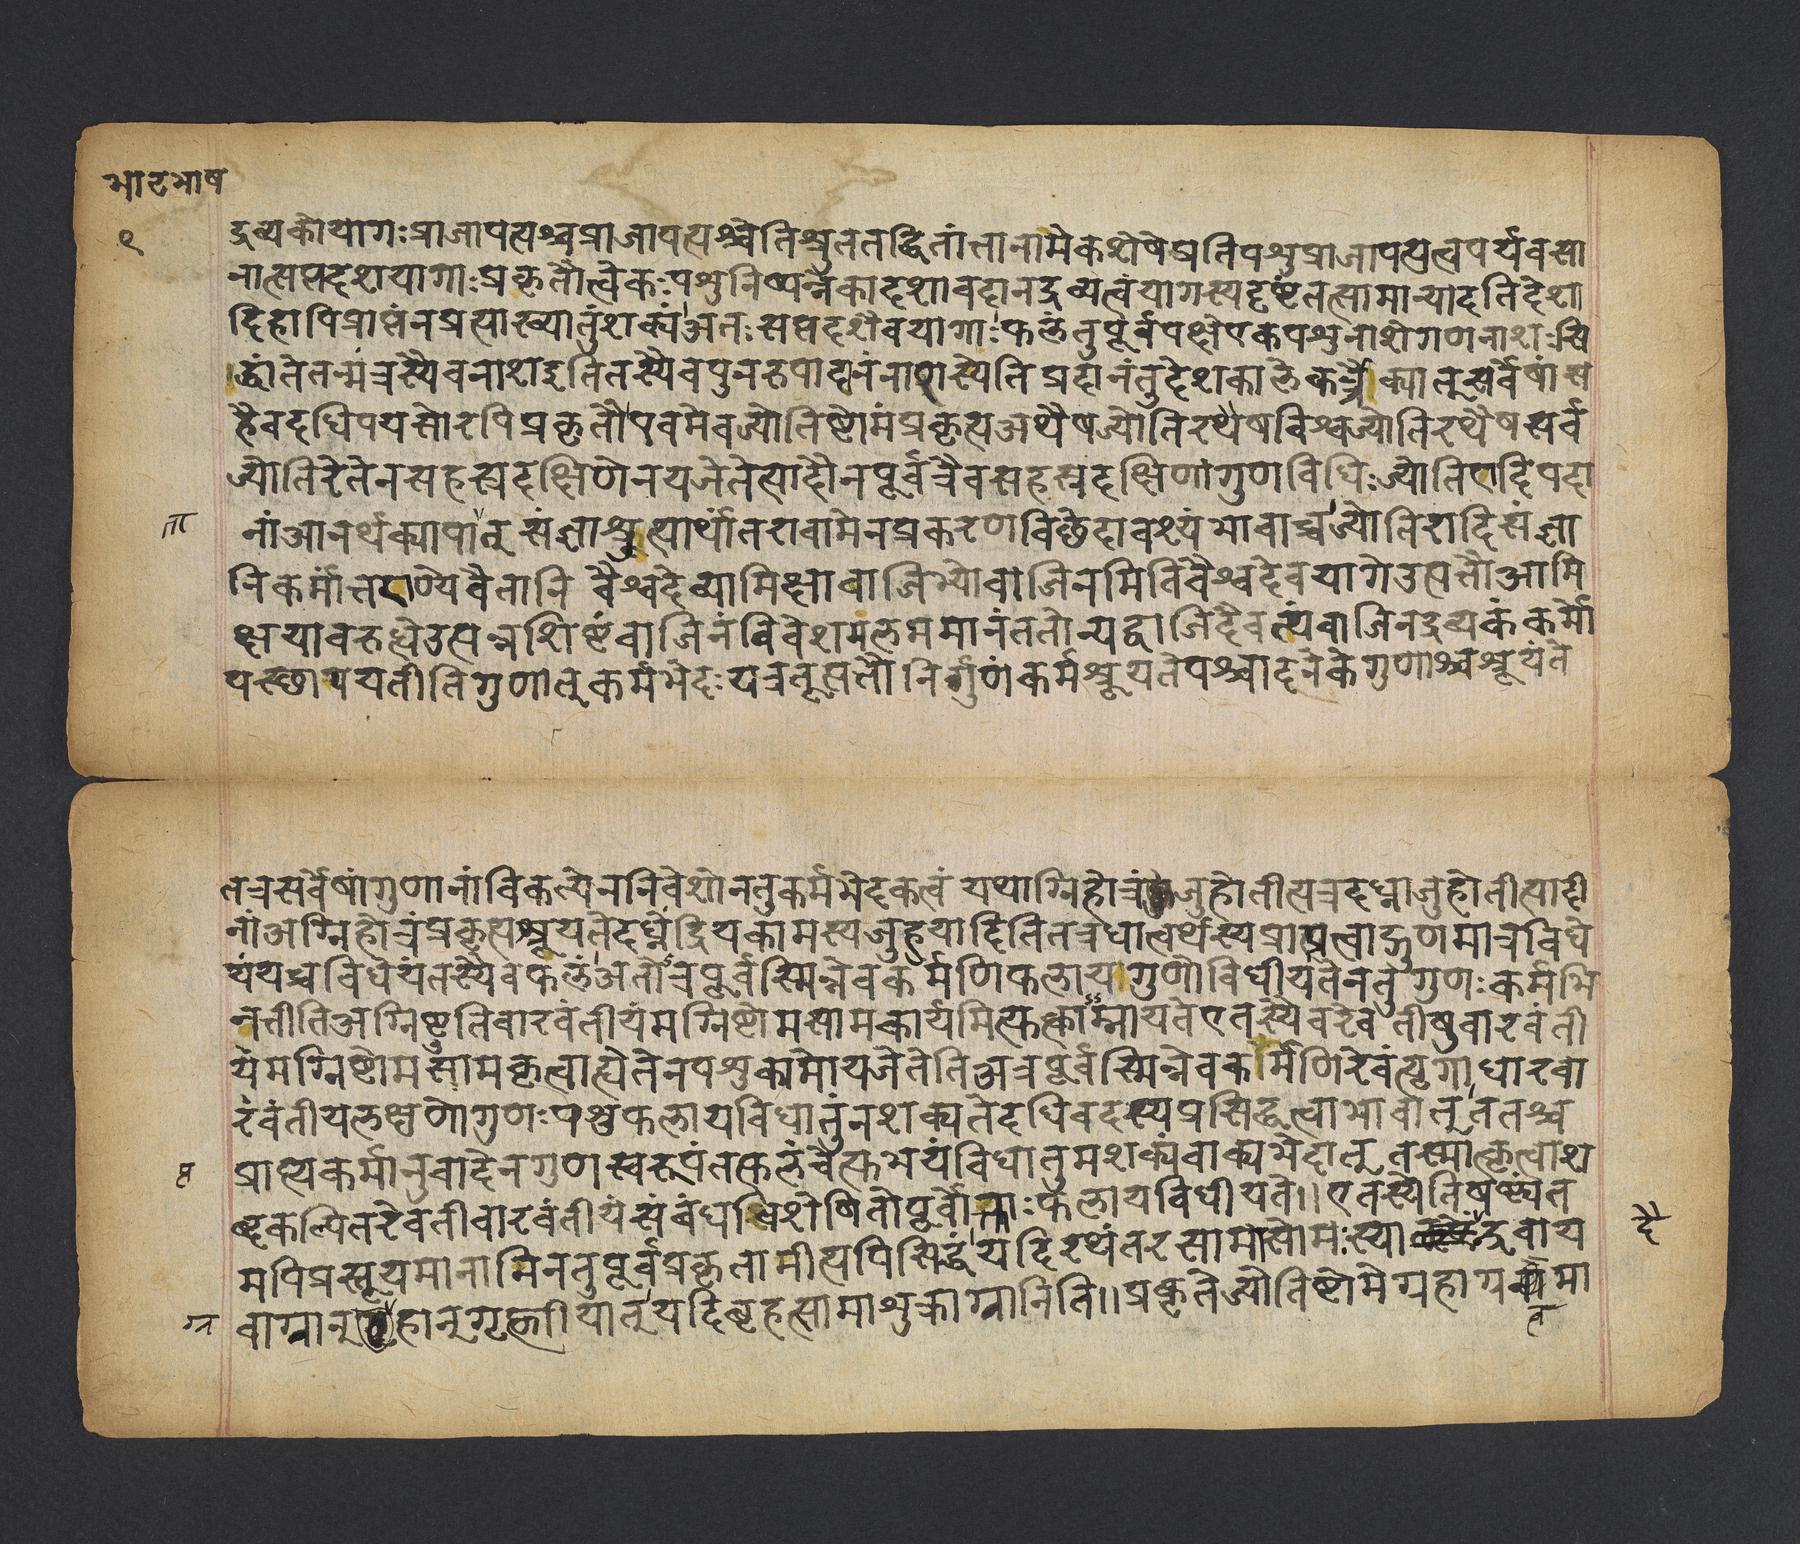 भाटभाष
९
द्रव्यकोयागःप्राजापत्यश्चप्राजापत्यश्चेतिश्रुततद्धितांतानामेकशेषेप्रतिपशुप्राजापत्यत्वपर्यवसा
नात्सप्तदशयागाःप्रकृतौत्वेकःपशुनिष्पन्नैकादशावदानद्रव्यत्वंयागस्यदृष्टंतत्सामान्यादतिदेशा
दिहापिप्राप्तंनप्रत्याख्यातुंशक्यंअतःसप्तदशैवयागाःफलंतुपूर्वपक्षेएकपशुनाशेगणनाशःसि
द्धांतेतन्मंत्रस्यैवनाशइतितस्यैवपुनरुपादानंनान्यस्येति प्रदानंतुदेशकालकर्त्रैक्यात्सर्वेषांस
हैवदधिपयसोरपिप्रकृतौएवमेवज्योतिष्टोमंप्रकृत्यअथैषज्योतिरथैषविश्वज्योतिरथैषसर्व
ज्योतिरेतेनसहस्रदक्षिणेनयजेतेत्यादौनपूर्वत्रैवसहस्रदक्षिणागुणविधिःज्योतिरादिपदा
नांआनर्थक्यापातात् संज्ञाश्रुत्यार्थांतरावगमेनप्रकरणविछेदावश्यंभावाच्चज्योतिरादिसंज्ञा
निकर्मांतराण्येवैतानि वैश्वदेव्यामिक्षावाजिभ्योवाजिनमितिवैश्वदेवयागेउत्पत्तौआमि
क्षयावरुध्देउत्पन्नशिष्टंवाजिनंनिवेशमलभमानंततोन्यद्वाजिदैवत्यंवाजिनद्रव्यकंकर्मो
पस्छापयतीतिगुणात्कर्मभेदःयत्रतूत्पत्तौनिर्गुणंकर्मश्रूयतेपश्चादनेकेगुणाश्चश्रूयंते
तत्रसर्वेषांगुणानांविकल्पेननिवेशोनतुकर्मभेदकत्वं यथाग्निहोत्रंजुहोतीत्यत्रदध्नाजुहोतीत्यादी
नांअग्निहोत्रंप्रकृत्यश्रूयतेदध्नेंद्रियकामस्यजुहुयादितितत्रधात्वर्थस्यप्राप्तत्वाद्गुणमात्रविधे
यंयच्चविधेयंतस्यैवफलंअतोत्रपूर्वस्मिन्नेवकर्मणिफलायगुणोविधीयतेनतुगुणःकर्मभि
नत्तीतिअग्निष्टुतिवारवंतीयमग्निष्टोमसामकार्यमित्युक्त्वाम्नायतेएतस्यैवरेवतीषुवारवंती
यमग्निष्टोमसामकृत्वाह्येतेनपशुकामोयजेतेतिअत्रपूर्वस्मिन्नेवकर्मणिरेवत्यृगाधारवा
रवंतीयलक्षणोगुणःपशुफलायविधातुंनशक्यतेदधिवदस्यप्रसिद्धत्वाभावात् ततश्च
प्राप्यकर्मानुवादेनगुणस्वरूपंतत्फलंचेत्युभयंविधातुमशक्यंवाक्यभेदात् तस्मात्कृत्वाश
ब्दकल्पितरेवतीवारवंतीयसंबंधविशेषितोपूर्वोयागःफलायविधीयते॥एतस्येतिषष्ट्यंत
मपिप्रस्तूयमानगामिनतुपूर्वप्रकृतगामीत्यपिसिद्धं यदिरथंतरसामासोमःस्यादैंद्रवाय
वाग्रान्ग्रहान्गृह्णीयात्यदिबृहत्सामाशुक्राग्रानिति॥प्रकृतेज्योतिष्टोमेग्रहाग्रमा